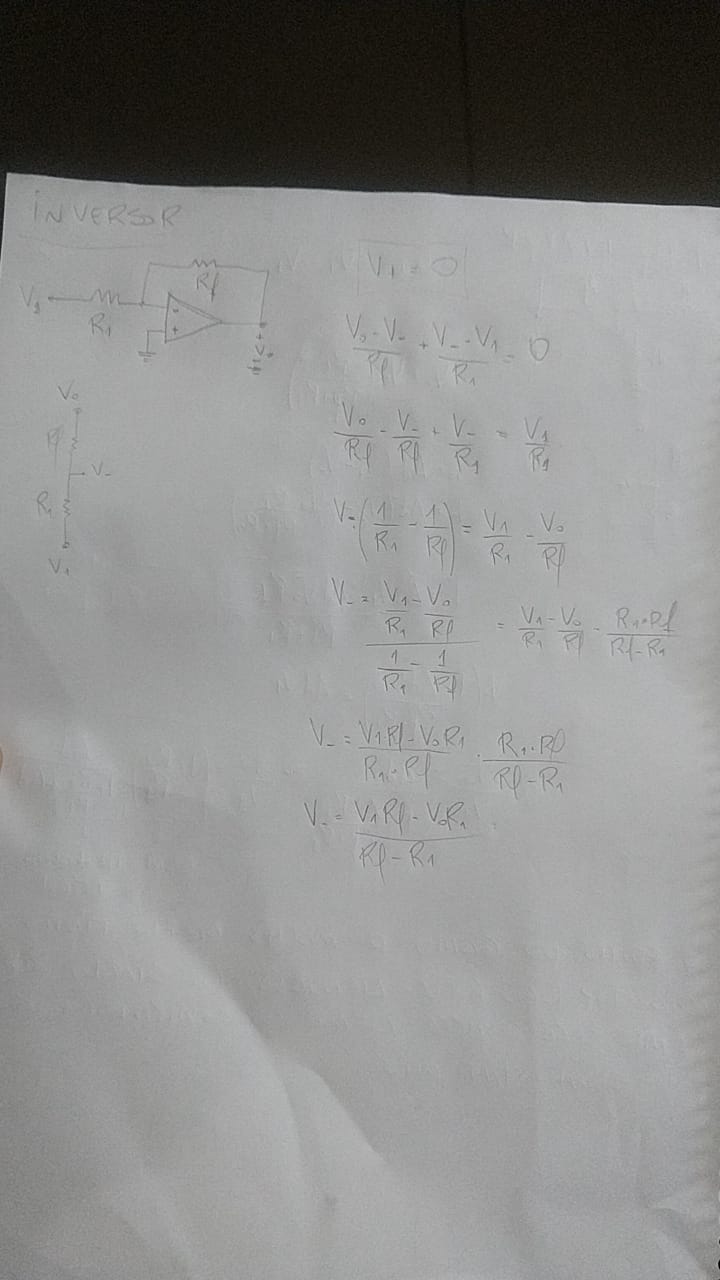 INVERSOR
V1 Rf R1 - + + Vo -
V+ = 0
Vo Rf V- R1 V1
(Vo - V-)/Rf + (V- - V1)/R1 = 0
Vo/Rf - V-/Rf + V-/R1 = V1/R1
V-(1/R1 - 1/Rf) = V1/R1 - Vo/Rf
V- = (V1/R1 - Vo/Rf)/(1/R1 - 1/Rf) = V1/R1 - Vo/Rf · (R1·Rf)/(Rf - R1)
V- = (V1Rf - VoR1)/(R1·Rf) · (R1·Rf)/(Rf - R1)
V- = (V1Rf - VoR1)/(Rf - R1)